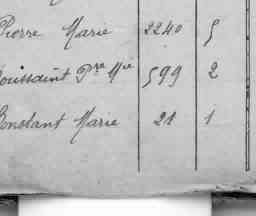 Pierre Marie 2240 5
Toussaint Pre Mie 599 2
Constant Marie 21 1